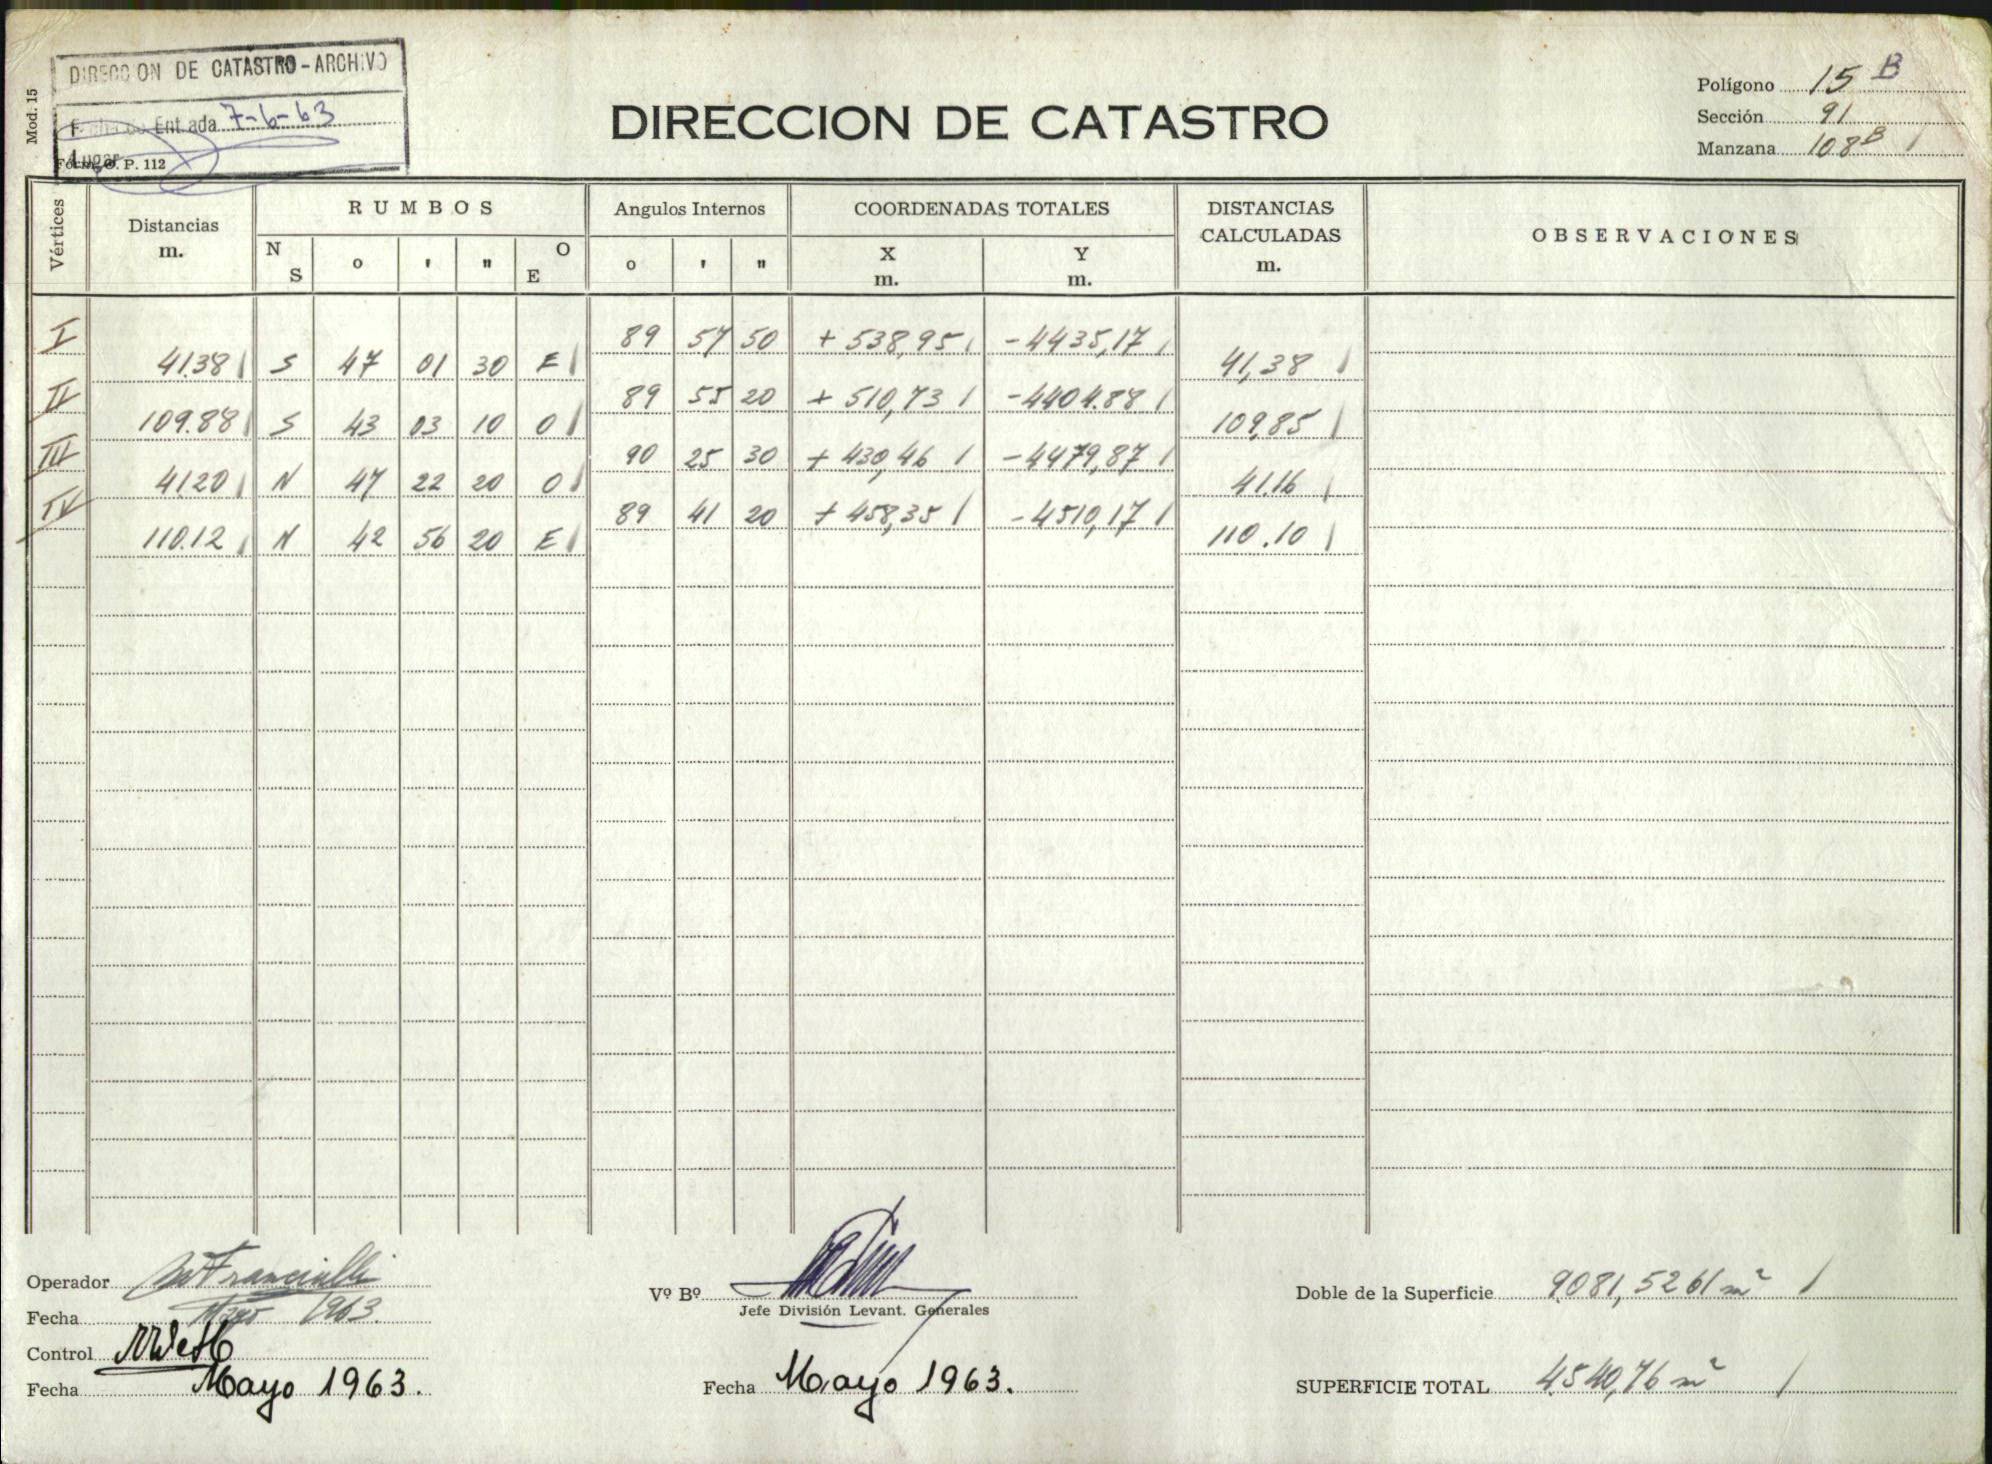 DIRECCION DE CATASTRO - ARCHIVO
Entrada 7-6-63
Lugar
Mod. 15
Form. O. P. 112
DIRECCION DE CATASTRO
Polígono 15 B
Sección 91
Manzana 108 B
Vértices Distancias m. RUMBOS N S o ' " O E Angulos Internos o ' " COORDENADAS TOTALES X m. Y m. DISTANCIAS CALCULADAS m. OBSERVACIONES
I 89 57 50 + 538,95 -4435,17
41.38 S 47 01 30 E 41,38
II 89 55 20 + 510,73 -4404.88
109.88 S 43 03 10 O 109,85
III 90 25 30 + 430,46 -4479,87
41.20 N 47 22 20 O 41.16
IV 89 41 20 + 458,35 -4510,17
110.12 N 42 56 20 E 110.10
Operador
Fecha Mayo 1963.
Control
Fecha Mayo 1963.
Vº Bº
Jefe División Levant. Generales
Fecha Mayo 1963.
Doble de la Superficie 9.081,5261 m²
SUPERFICIE TOTAL 4.540,76 m²